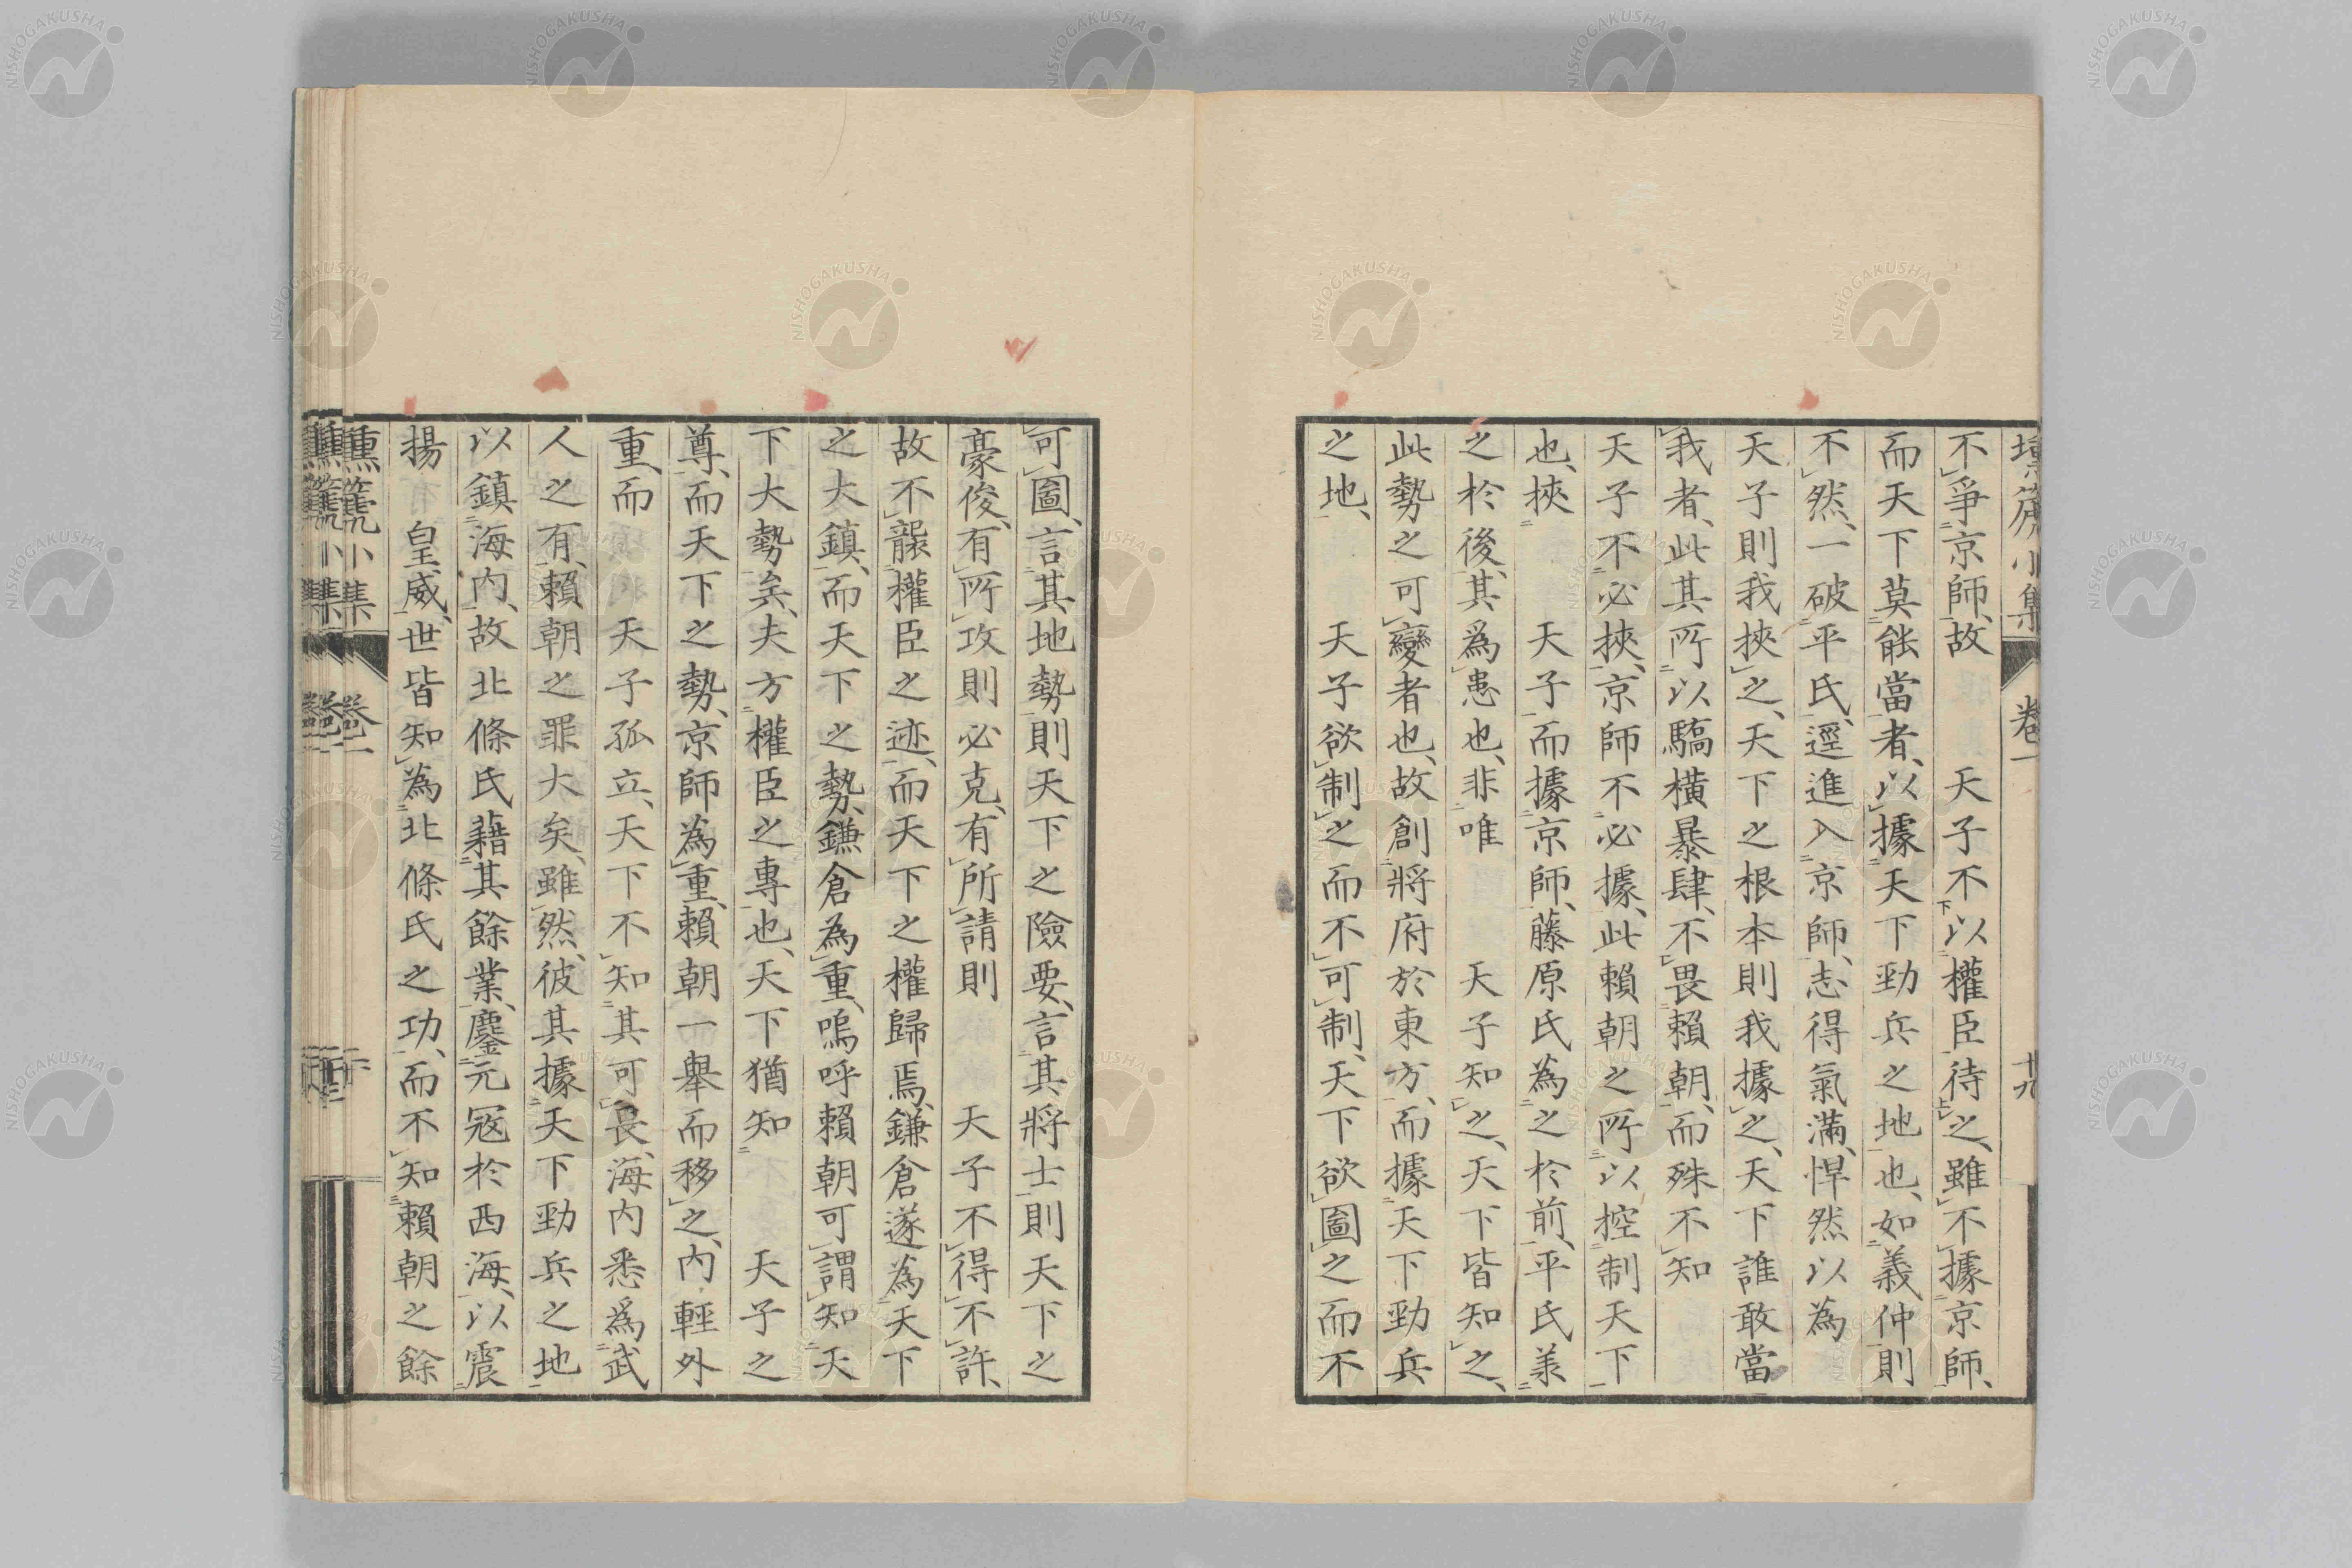 不爭京師故　天子不以權臣待之、雖不據京師、
而天下莫能當者、以據天下勁兵之地也、如義仲則
不然、一破平氏、逕進入京師、志得氣滿、悍然以為
天子則我挾之、天下之根本則我據之、天下誰敢當
我者、此其所以驕橫暴肆、不畏賴朝、而殊不知
天子不必挾、京師不必據、此賴朝之所以控制天下
也、挾　天子而據京師、藤原氏為之於前、平氏羕
之於後、其爲患也、非唯　天子知之、天下皆知之、
此勢之可變者也、故創將府於東方、而據天下勁兵
之地、　天子欲制之而不可制、天下欲圖之而不
可圖、言其地勢則天下之險要、言其將士則天下之
豪俊、有所攻則必克、有所請則　天子不得不許、
故不襲權臣之迹、而天下之權歸焉、鎌倉遂為天下
之大鎮、而天下之勢、鎌倉為重、嗚呼賴朝可謂知天
下大勢矣、夫方權臣之專也、天下猶知　天子之
尊、而天下之勢、京師為重、賴朝一舉而移之、內輕外
重、而　天子孤立、天下不知其可畏、海內悉爲武
人之有、賴朝之罪大矣、雖然、彼其據天下勁兵之地
以鎮海內、故北條氏藉其餘業、鏖元寇於西海、以震
揚　皇威、世皆知為北條氏之功、而不知賴朝之餘
壎篪小集　卷一　十九
壎篪小集　卷一
NISHOGAKUSHA